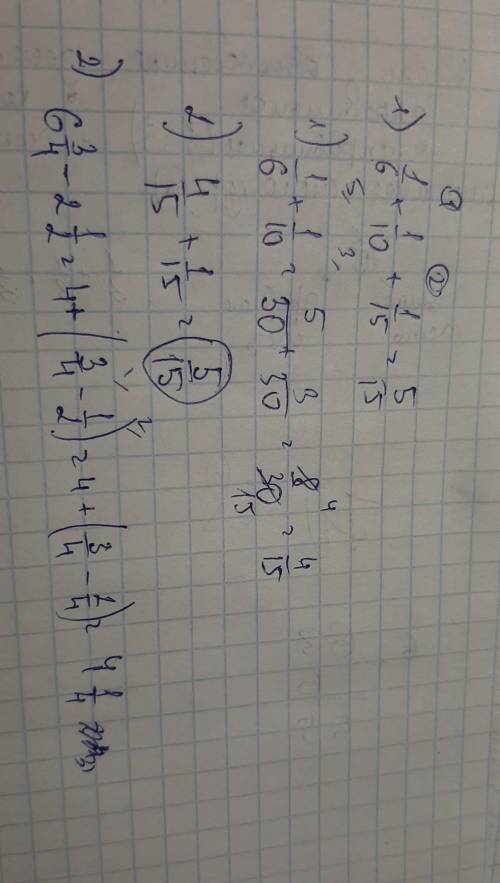 ① ②
1) 1/6 + 1/10 + 1/15 = 5/15
1) 1/6 + 1/10 = 5/30 + 3/30 = 8/30 = 4/15
5 3 4 15
2) 4/15 + 1/15 = 5/15
2) 6 3/4 - 2 1/2 = 4 + (3/4 - 1/2) = 4 + (3/4 - 2/4) = 4 1/4
1 2